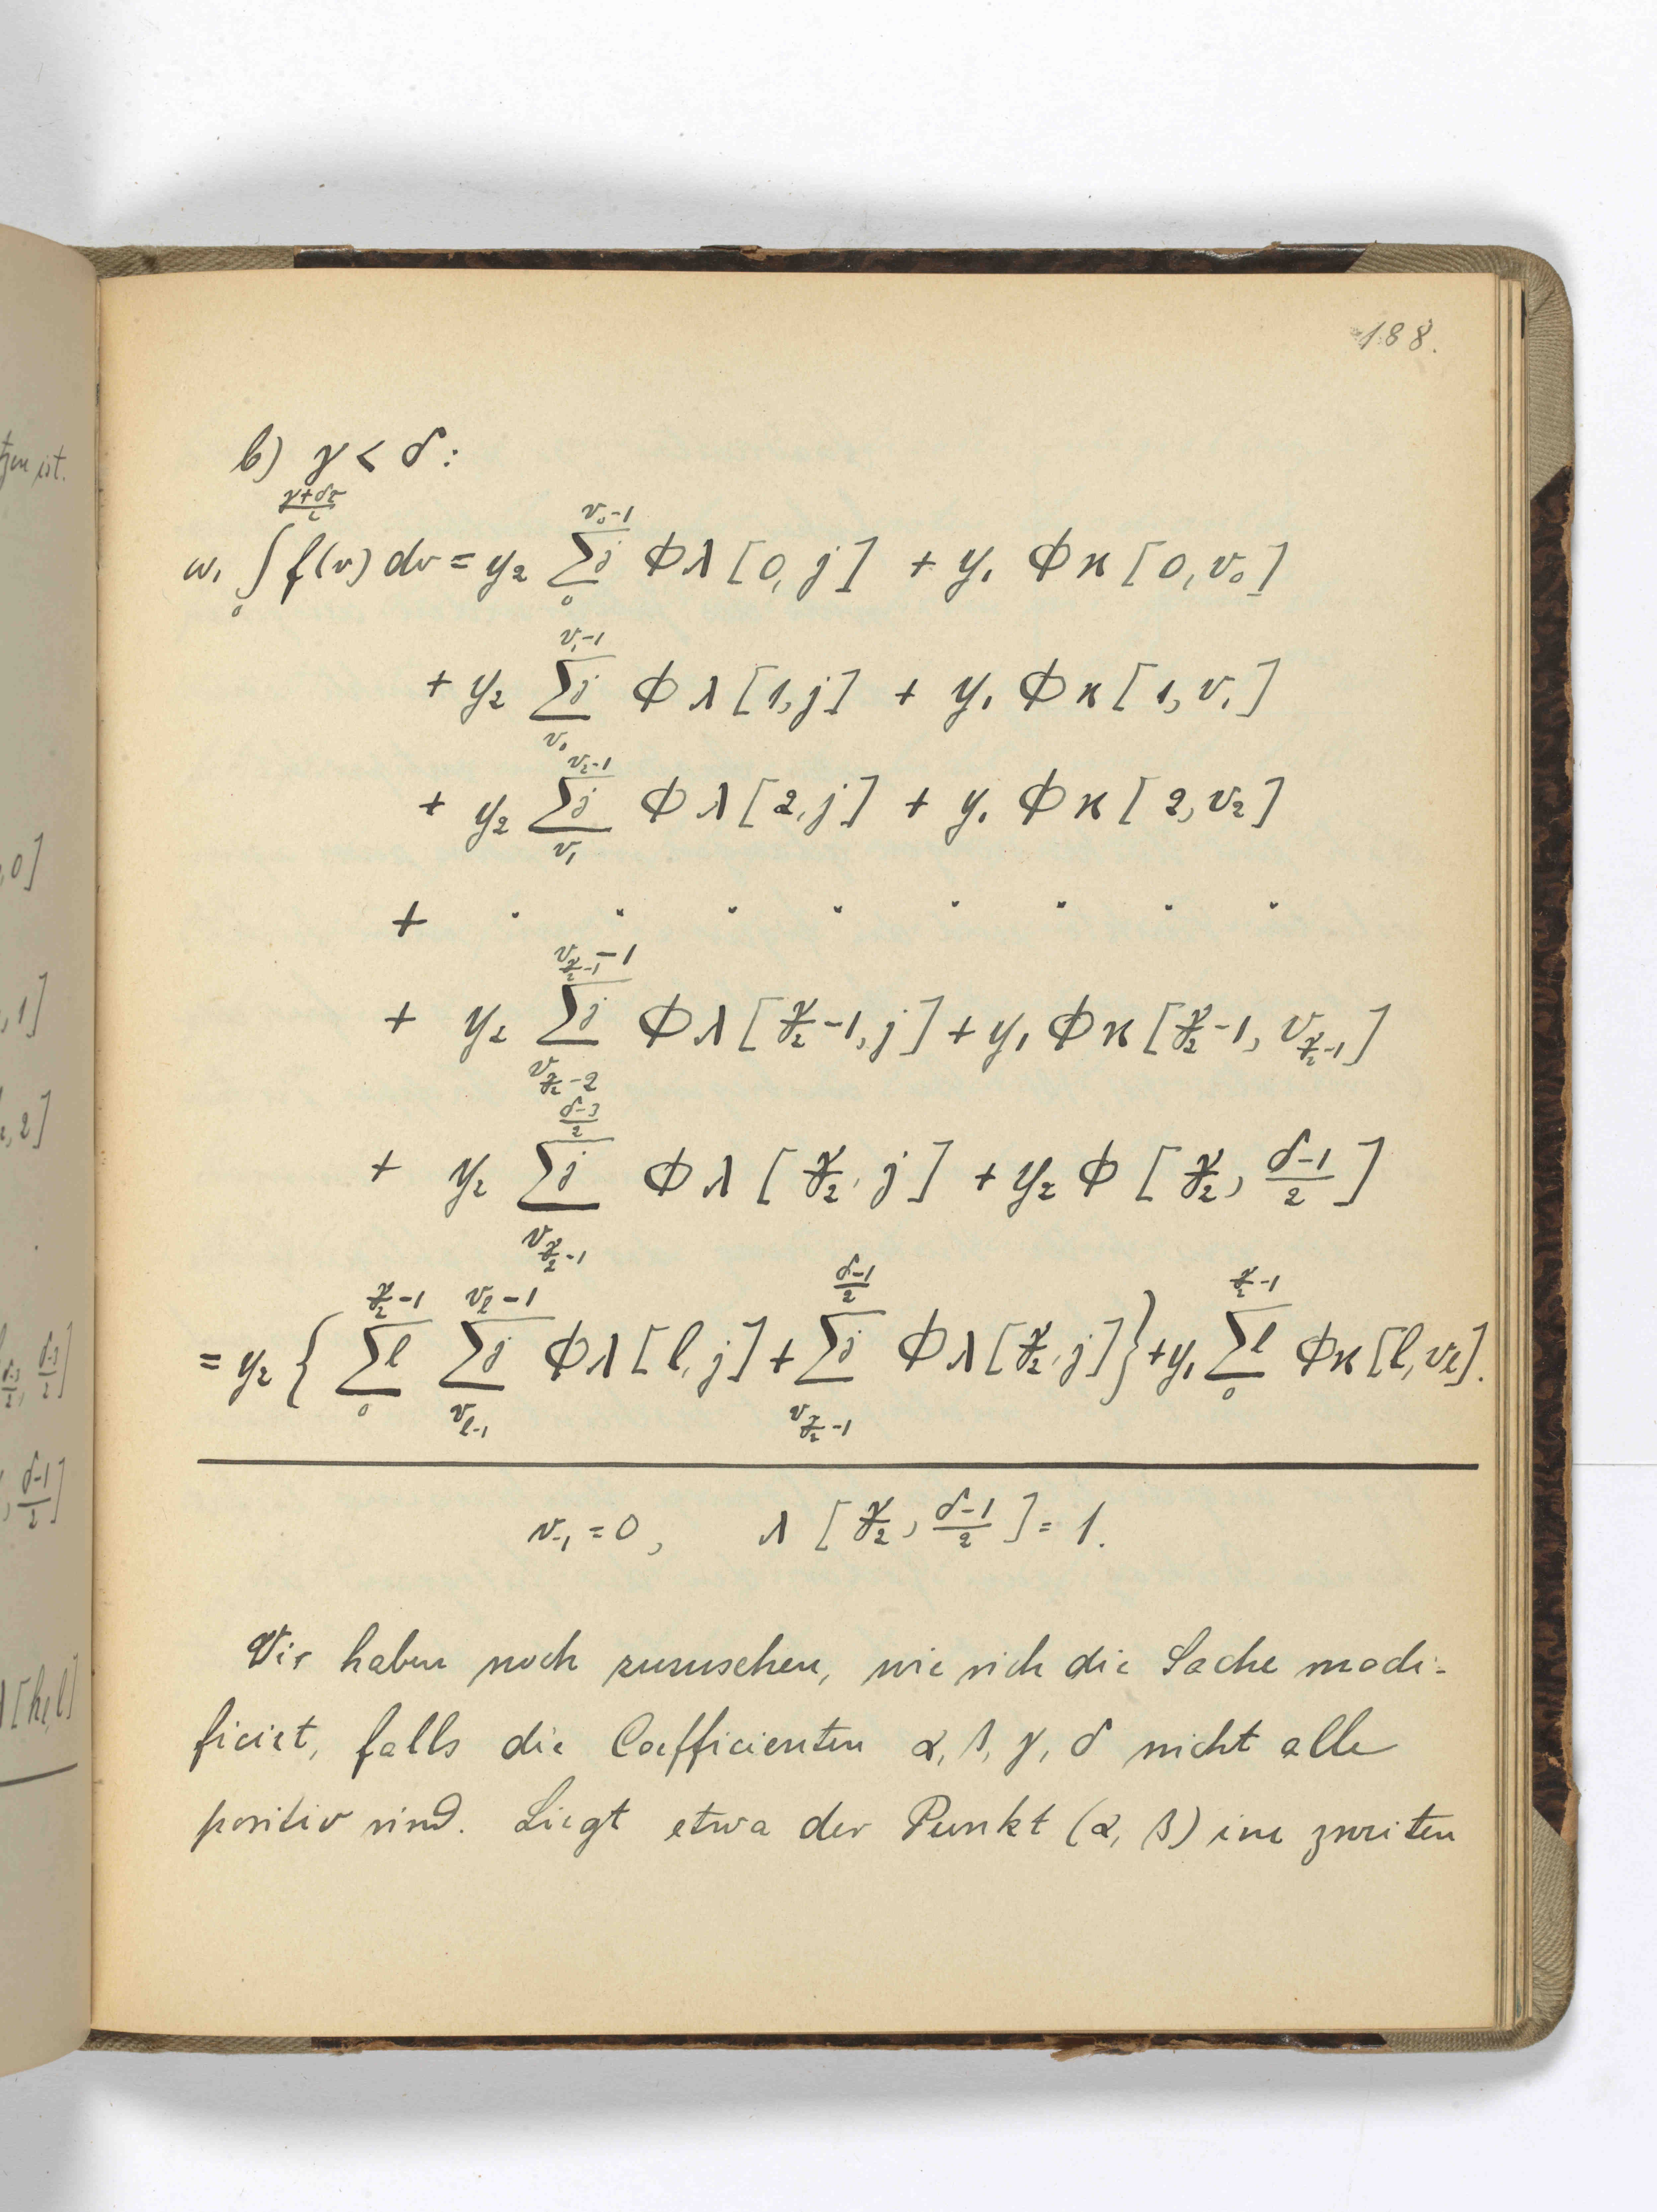 188.
b) γ < δ:
ω₁ ∫_0^{(γ+δτ)/2} f(v) dv = y₂ Σj_0^{v₀-1} Φλ[0, j] + y₁ Φϰ[0, v₀]
+ y₂ Σj_{v₀}^{v₁-1} Φλ[1, j] + y₁ Φϰ[1, v₁]
+ y₂ Σj_{v₁}^{v₂-1} Φλ[2, j] + y₁ Φϰ[2, v₂]
+ . . . . . . . .
+ y₂ Σj_{v_{γ/2-2}}^{v_{γ/2-1}-1} Φλ[γ/2-1, j] + y₁ Φϰ[γ/2-1, v_{γ/2-1}]
+ y₂ Σj_{v_{γ/2-1}}^{(δ-3)/2} Φλ[γ/2, j] + y₂ Φ[γ/2, (δ-1)/2]
= y₂ { Σl_0^{γ/2-1} Σj_{v_{l-1}}^{v_l-1} Φλ[l, j] + Σj_{v_{γ/2-1}}^{(δ-1)/2} Φλ[γ/2, j] } + y₁ Σl_0^{γ/2-1} Φϰ[l, v_l].
v₋₁ = 0, λ[γ/2, (δ-1)/2] = 1.
Wir haben noch zuzusehen, wie sich die Sache modi-
ficirt, falls die Coefficienten α, β, γ, δ nicht alle
positiv sind. Liegt etwa der Punkt (α, β) im zweiten
tzen ist.
,0]
,1]
,2]
(δ-3)/2]
, (δ-1)/2]